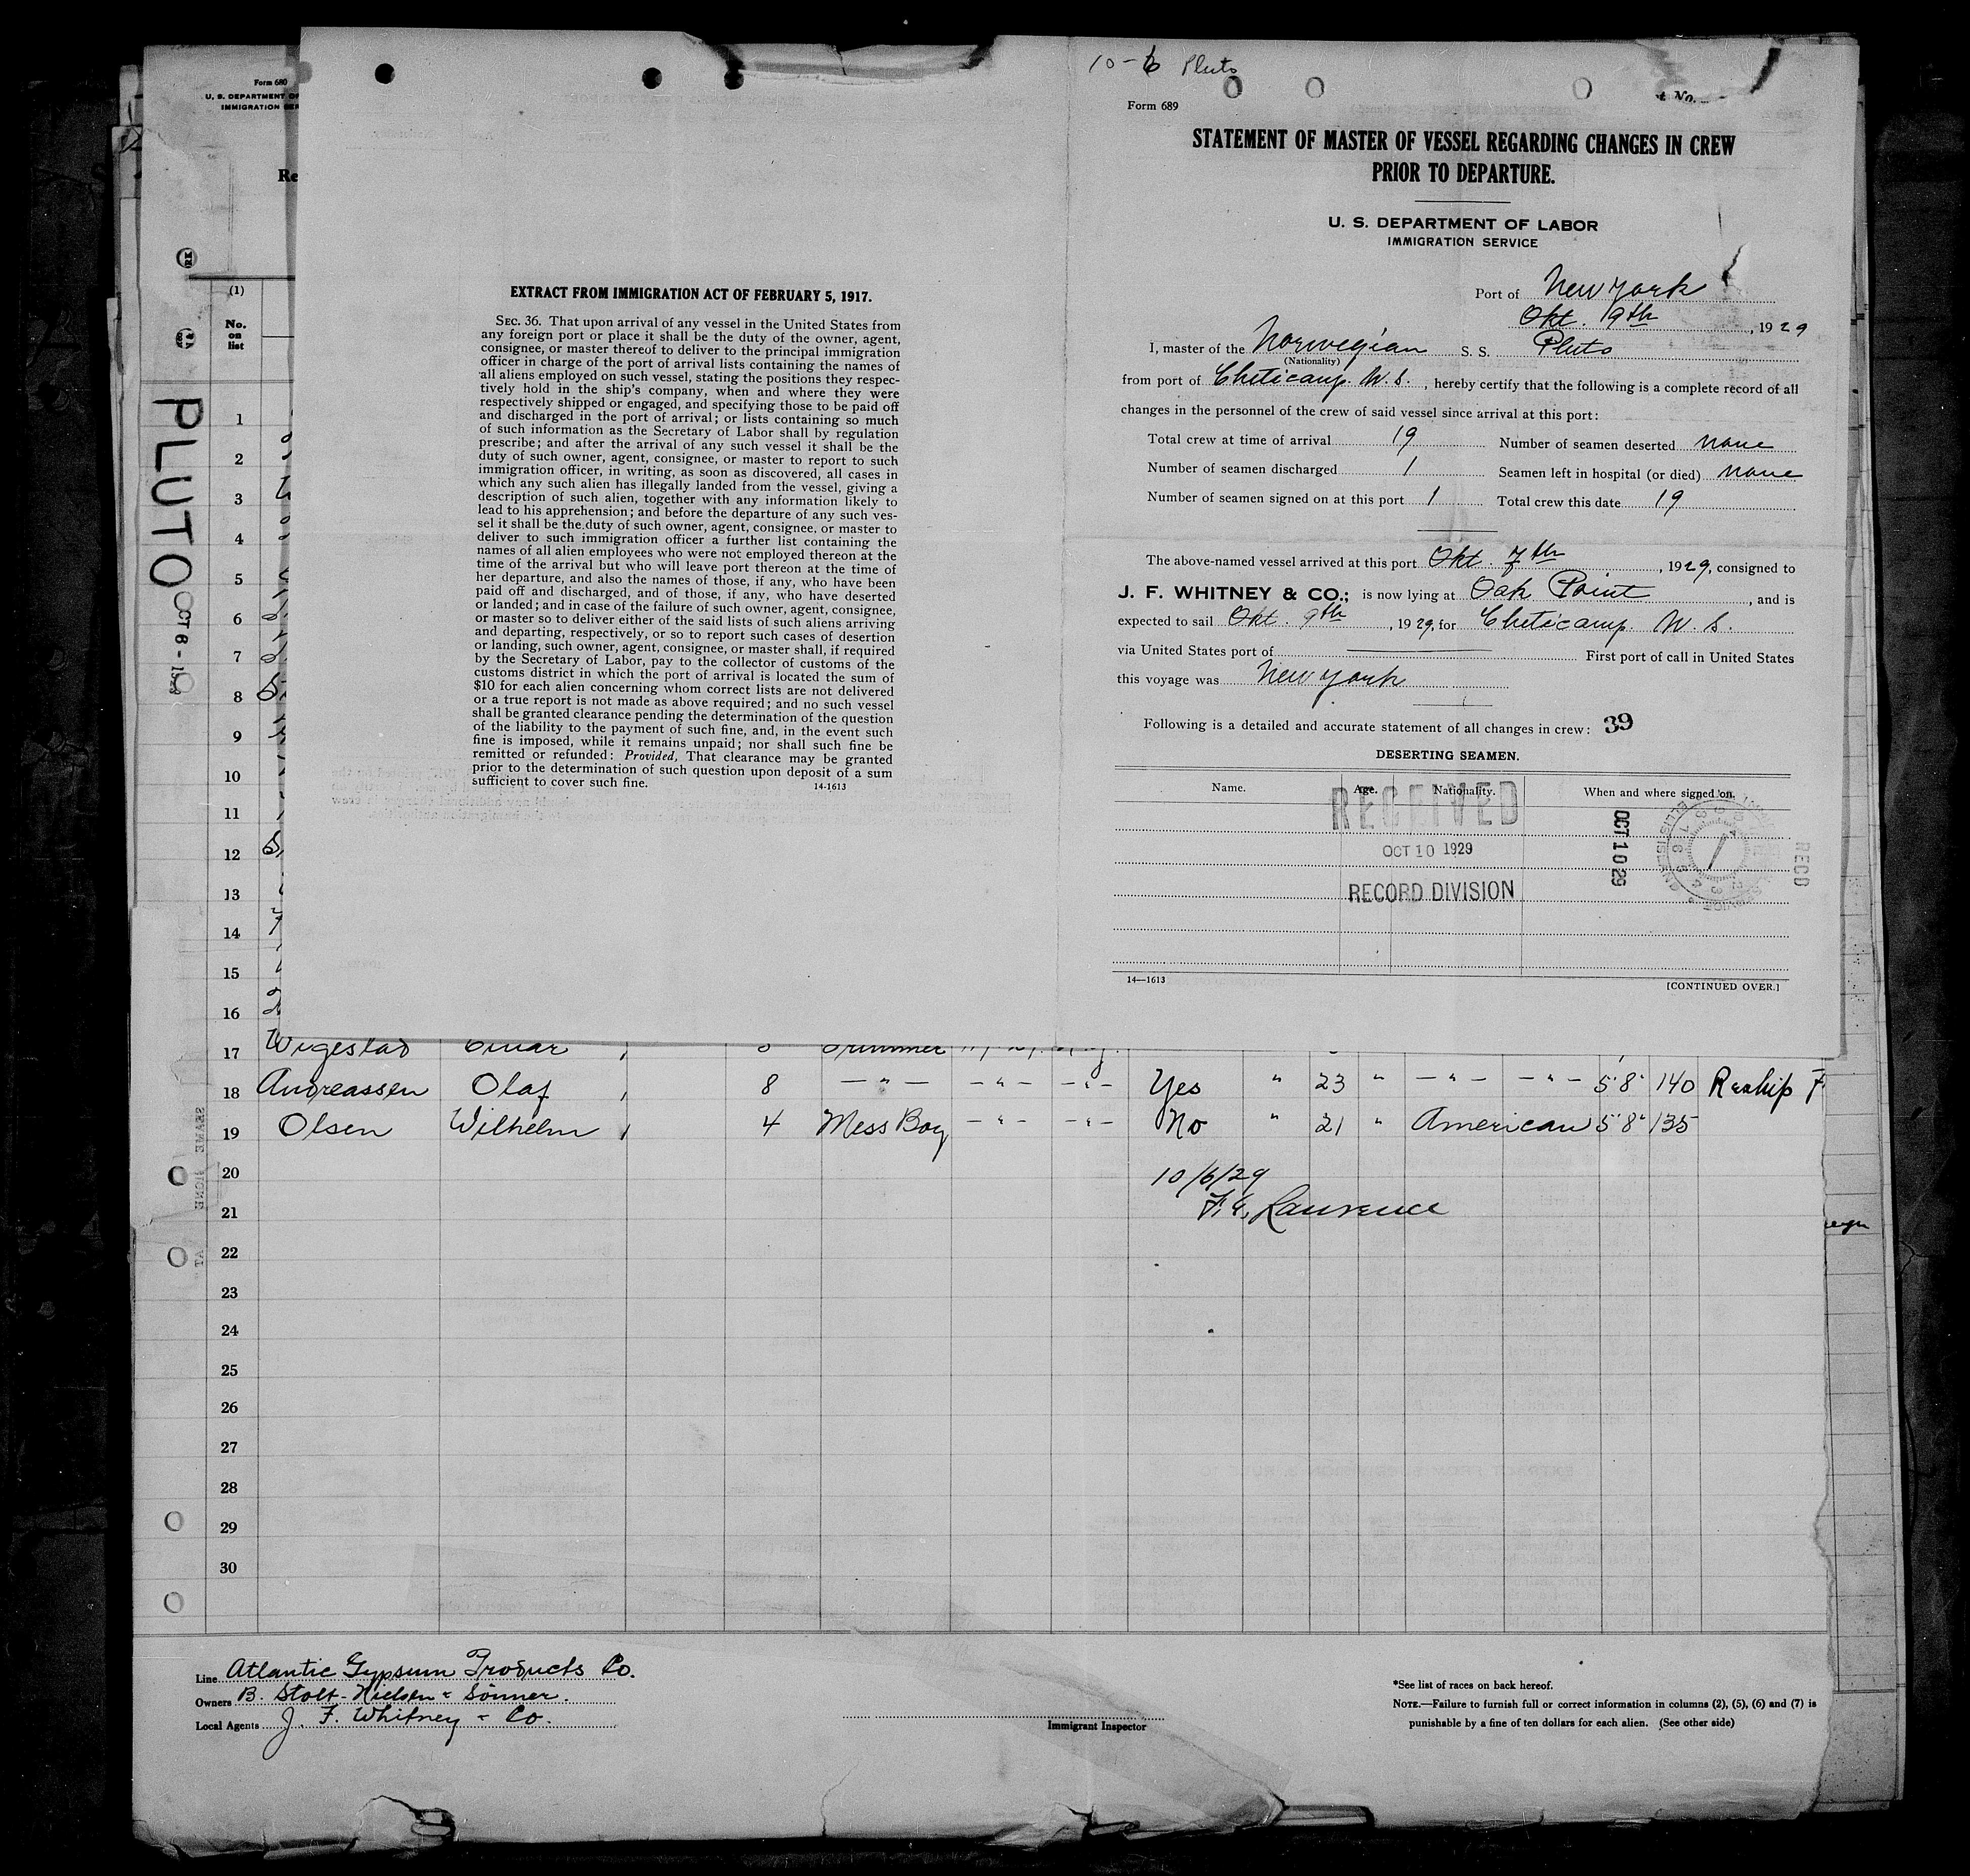 Form 680
U. S. DEPARTMENT OF
IMMIGRATION SER
Re
(1)
No.
on
list
PLUTO
OCT 6 - 1929
1
2
3
4
5
6
7
8
9
10
11
12
13
14
15
16
EXTRACT FROM IMMIGRATION ACT OF FEBRUARY 5, 1917.
SEC. 36. That upon arrival of any vessel in the United States from
any foreign port or place it shall be the duty of the owner, agent,
consignee, or master thereof to deliver to the principal immigration
officer in charge of the port of arrival lists containing the names of
all aliens employed on such vessel, stating the positions they respec-
tively hold in the ship's company, when and where they were
respectively shipped or engaged, and specifying those to be paid off
and discharged in the port of arrival; or lists containing so much
of such information as the Secretary of Labor shall by regulation
prescribe; and after the arrival of any such vessel it shall be the
duty of such owner, agent, consignee, or master to report to such
immigration officer, in writing, as soon as discovered, all cases in
which any such alien has illegally landed from the vessel, giving a
description of such alien, together with any information likely to
lead to his apprehension; and before the departure of any such ves-
sel it shall be the duty of such owner, agent, consignee, or master to
deliver to such immigration officer a further list containing the
names of all alien employees who were not employed thereon at the
time of the arrival but who will leave port thereon at the time of
her departure, and also the names of those, if any, who have been
paid off and discharged, and of those, if any, who have deserted
or landed; and in case of the failure of such owner, agent, consignee,
or master so to deliver either of the said lists of such aliens arriving
and departing, respectively, or so to report such cases of desertion
or landing, such owner, agent, consignee, or master shall, if required
by the Secretary of Labor, pay to the collector of customs of the
customs district in which the port of arrival is located the sum of
$10 for each alien concerning whom correct lists are not delivered
or a true report is not made as above required; and no such vessel
shall be granted clearance pending the determination of the question
of the liability to the payment of such fine, and, in the event such
fine is imposed, while it remains unpaid; nor shall such fine be
remitted or refunded: Provided, That clearance may be granted
prior to the determination of such question upon deposit of a sum
sufficient to cover such fine. 14-1613
10-6 Pluto
Form 689
t No.
STATEMENT OF MASTER OF VESSEL REGARDING CHANGES IN CREW
PRIOR TO DEPARTURE.
U. S. DEPARTMENT OF LABOR
IMMIGRATION SERVICE
Port of New York
Okt. 9th, 1929
I, master of the Norwegian S. S. Pluto
(Nationality)
from port of Cheticamp. N.S., hereby certify that the following is a complete record of all
changes in the personnel of the crew of said vessel since arrival at this port:
Total crew at time of arrival 19 Number of seamen deserted none
Number of seamen discharged 1 Seamen left in hospital (or died) none
Number of seamen signed on at this port 1 Total crew this date 19
The above-named vessel arrived at this port Okt. 7th, 1929, consigned to
J. F. WHITNEY & CO.; is now lying at Oak Point, and is
expected to sail Okt. 9th, 1929, for Cheticamp. N. S.
via United States port of First port of call in United States
this voyage was New York
Following is a detailed and accurate statement of all changes in crew: 39
DESERTING SEAMEN.
Name. Age. Nationality. When and where signed on.
RECEIVED
OCT 10 1929
RECORD DIVISION
OCT 10 29
RECD
14—1613 [CONTINUED OVER.]
17 Wigestad Einar Trimmer
18 Andreassen Olaf 8 —"— —"— —"— Yes " 23 " —"— —"— 5'8" 140 Reship F
19 Olsen Wilhelm 4 Mess Boy —"— —"— No " 21 " American 5'8" 135
20
10/6/29
21
F. E. Laurence
22
23
24
25
26
27
28
29
30
Line Atlantic Gypsum Products Co.
Owners B. Stolt-Nielsen & Sönner.
Local Agents J. F. Whitney & Co.
Immigrant Inspector
*See list of races on back hereof.
NOTE.—Failure to furnish full or correct information in columns (2), (5), (6) and (7) is
punishable by a fine of ten dollars for each alien. (See other side)